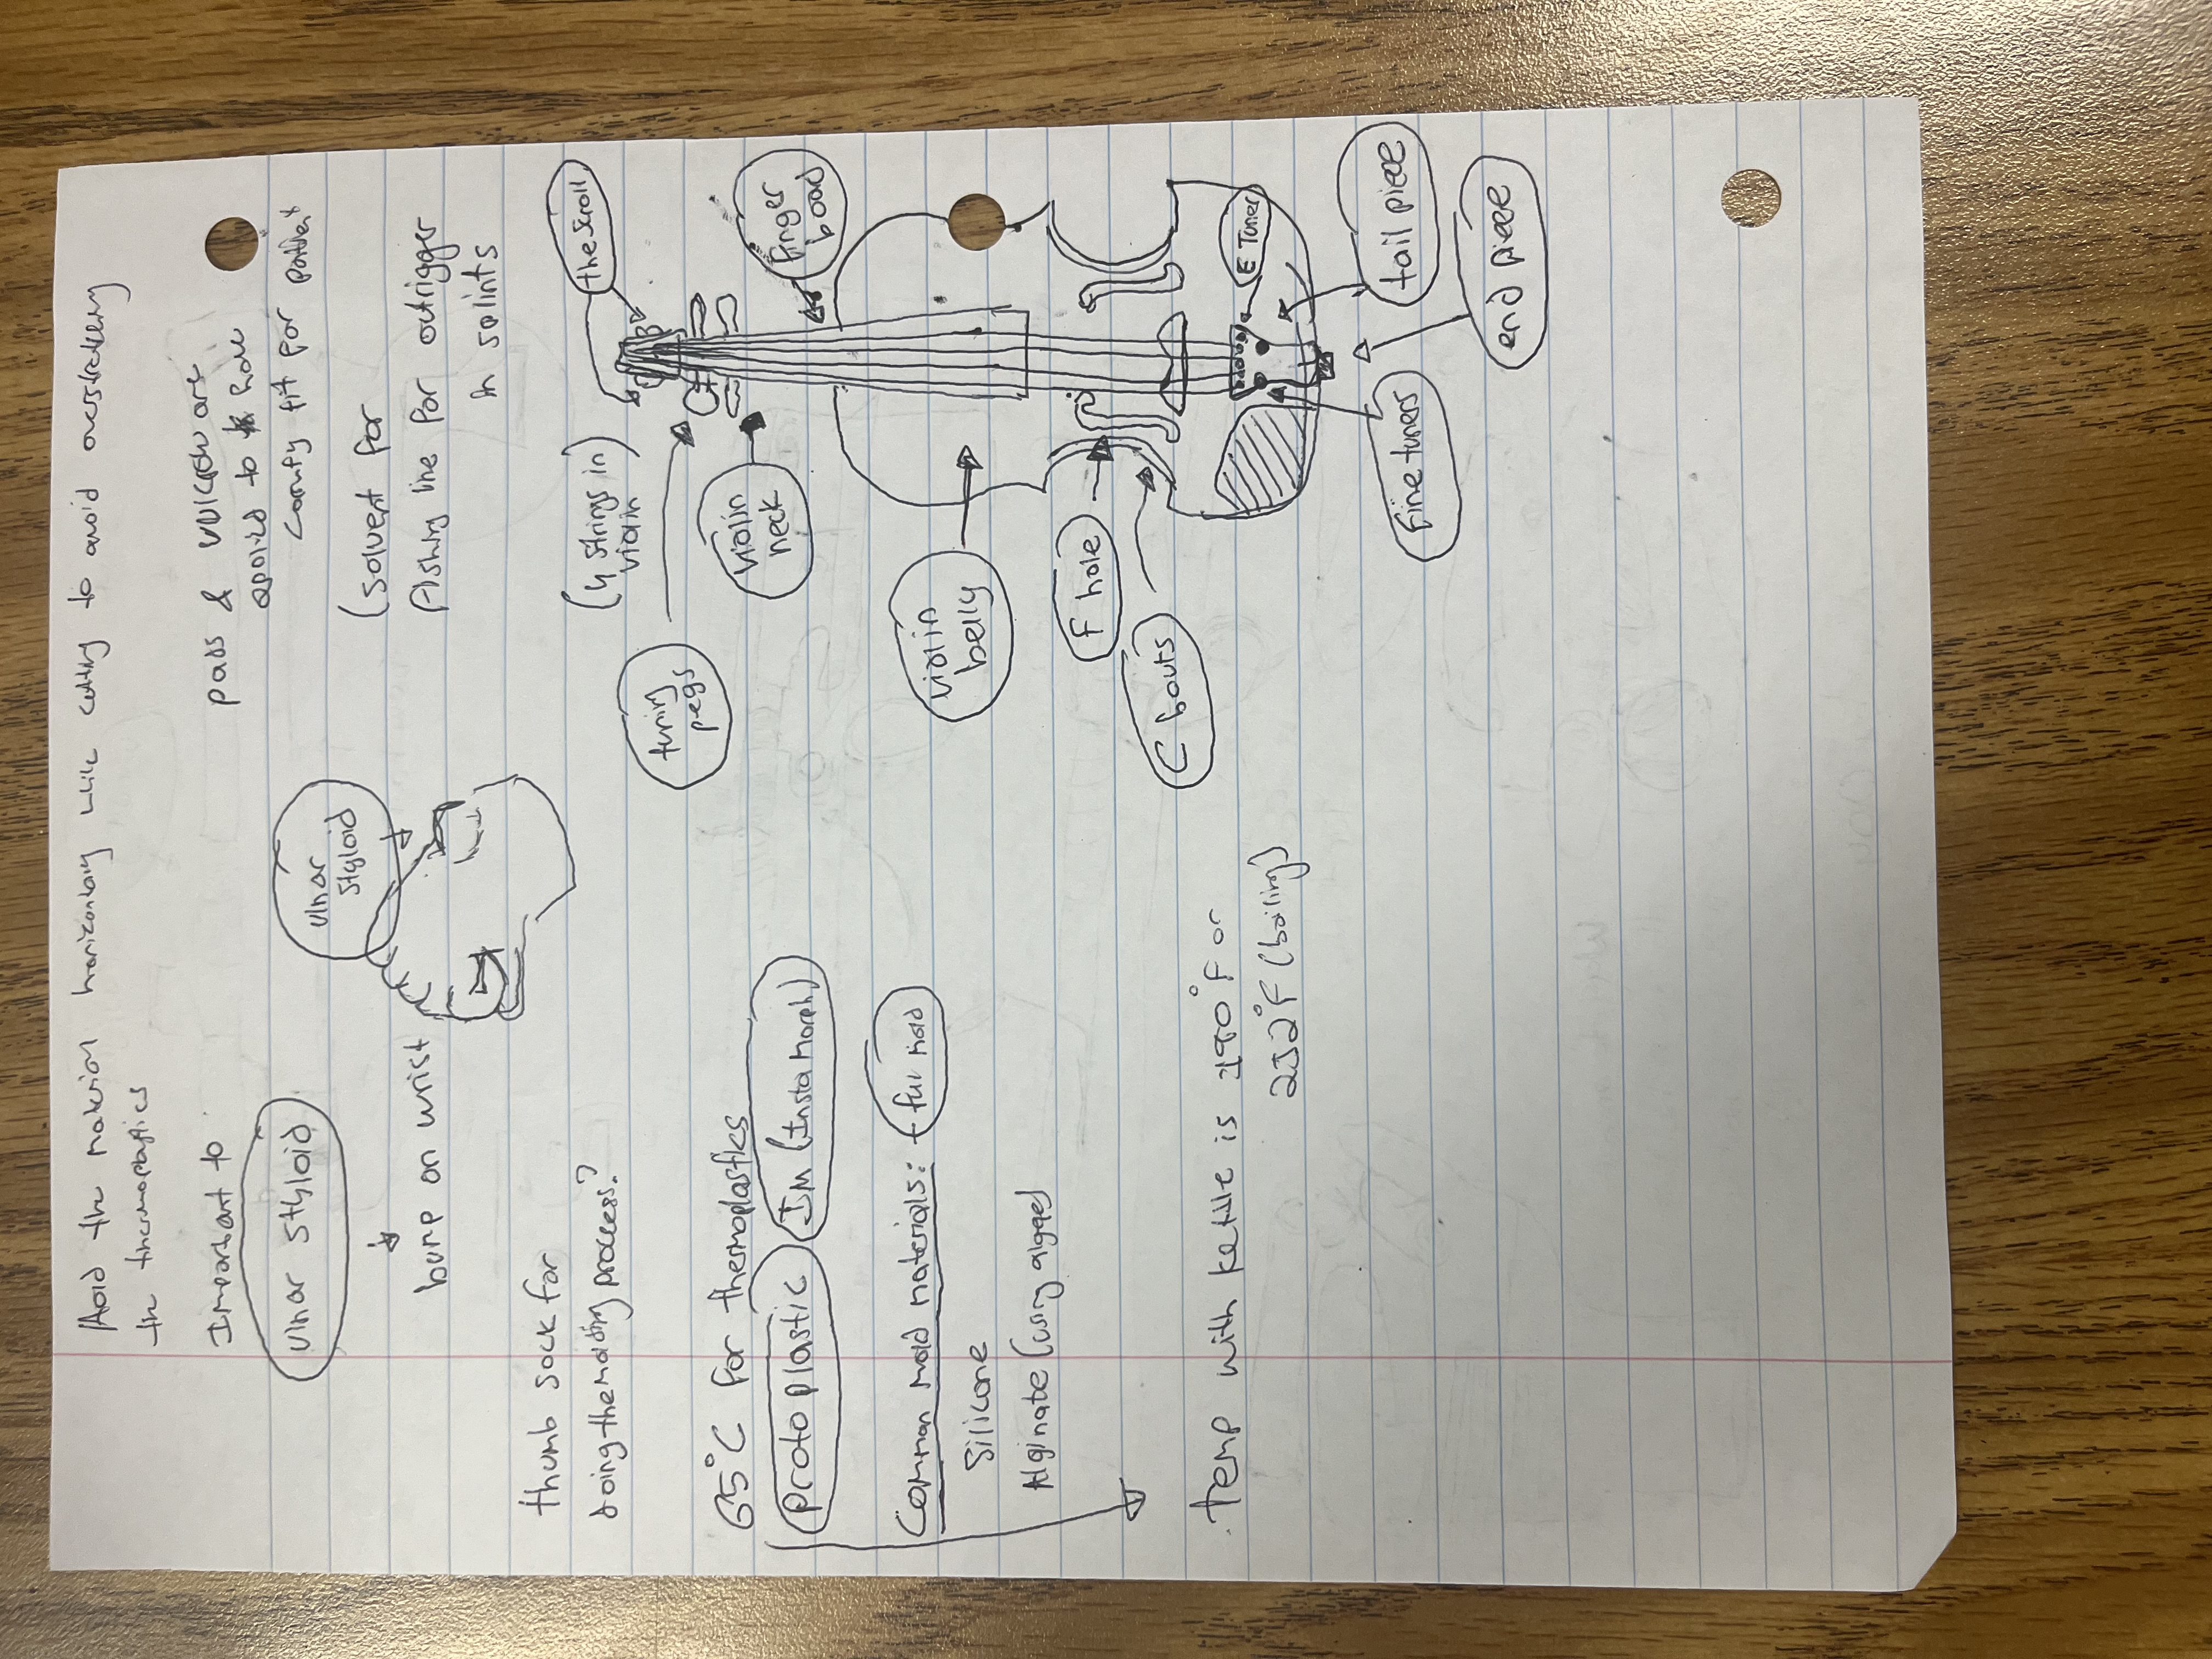 Hold the material horizontaly while cutting to avoid overstretching
the thermoplastics
Important to
ulnar styloid
bump on wrist
ulnar
styloid
pads & velcrow are
applied to have
comfy fit for patient
(solvent for
fishing line for outrigger
in splints
thumb sock for
doing the molding proccess?
65°C for thermoplastics
protoplastic
IM (InstaMorph)
Common mold materials: + full mold
Silicone
Alginate (using algae)
temp with kettle is 190°F or
212°F (boiling)
(4 strings in)
violin
the scroll
tuning
pegs
violin
neck
finger
board
violin
belly
F hole
C bouts
E Tuner
Fine tuners
tail piece
end piece